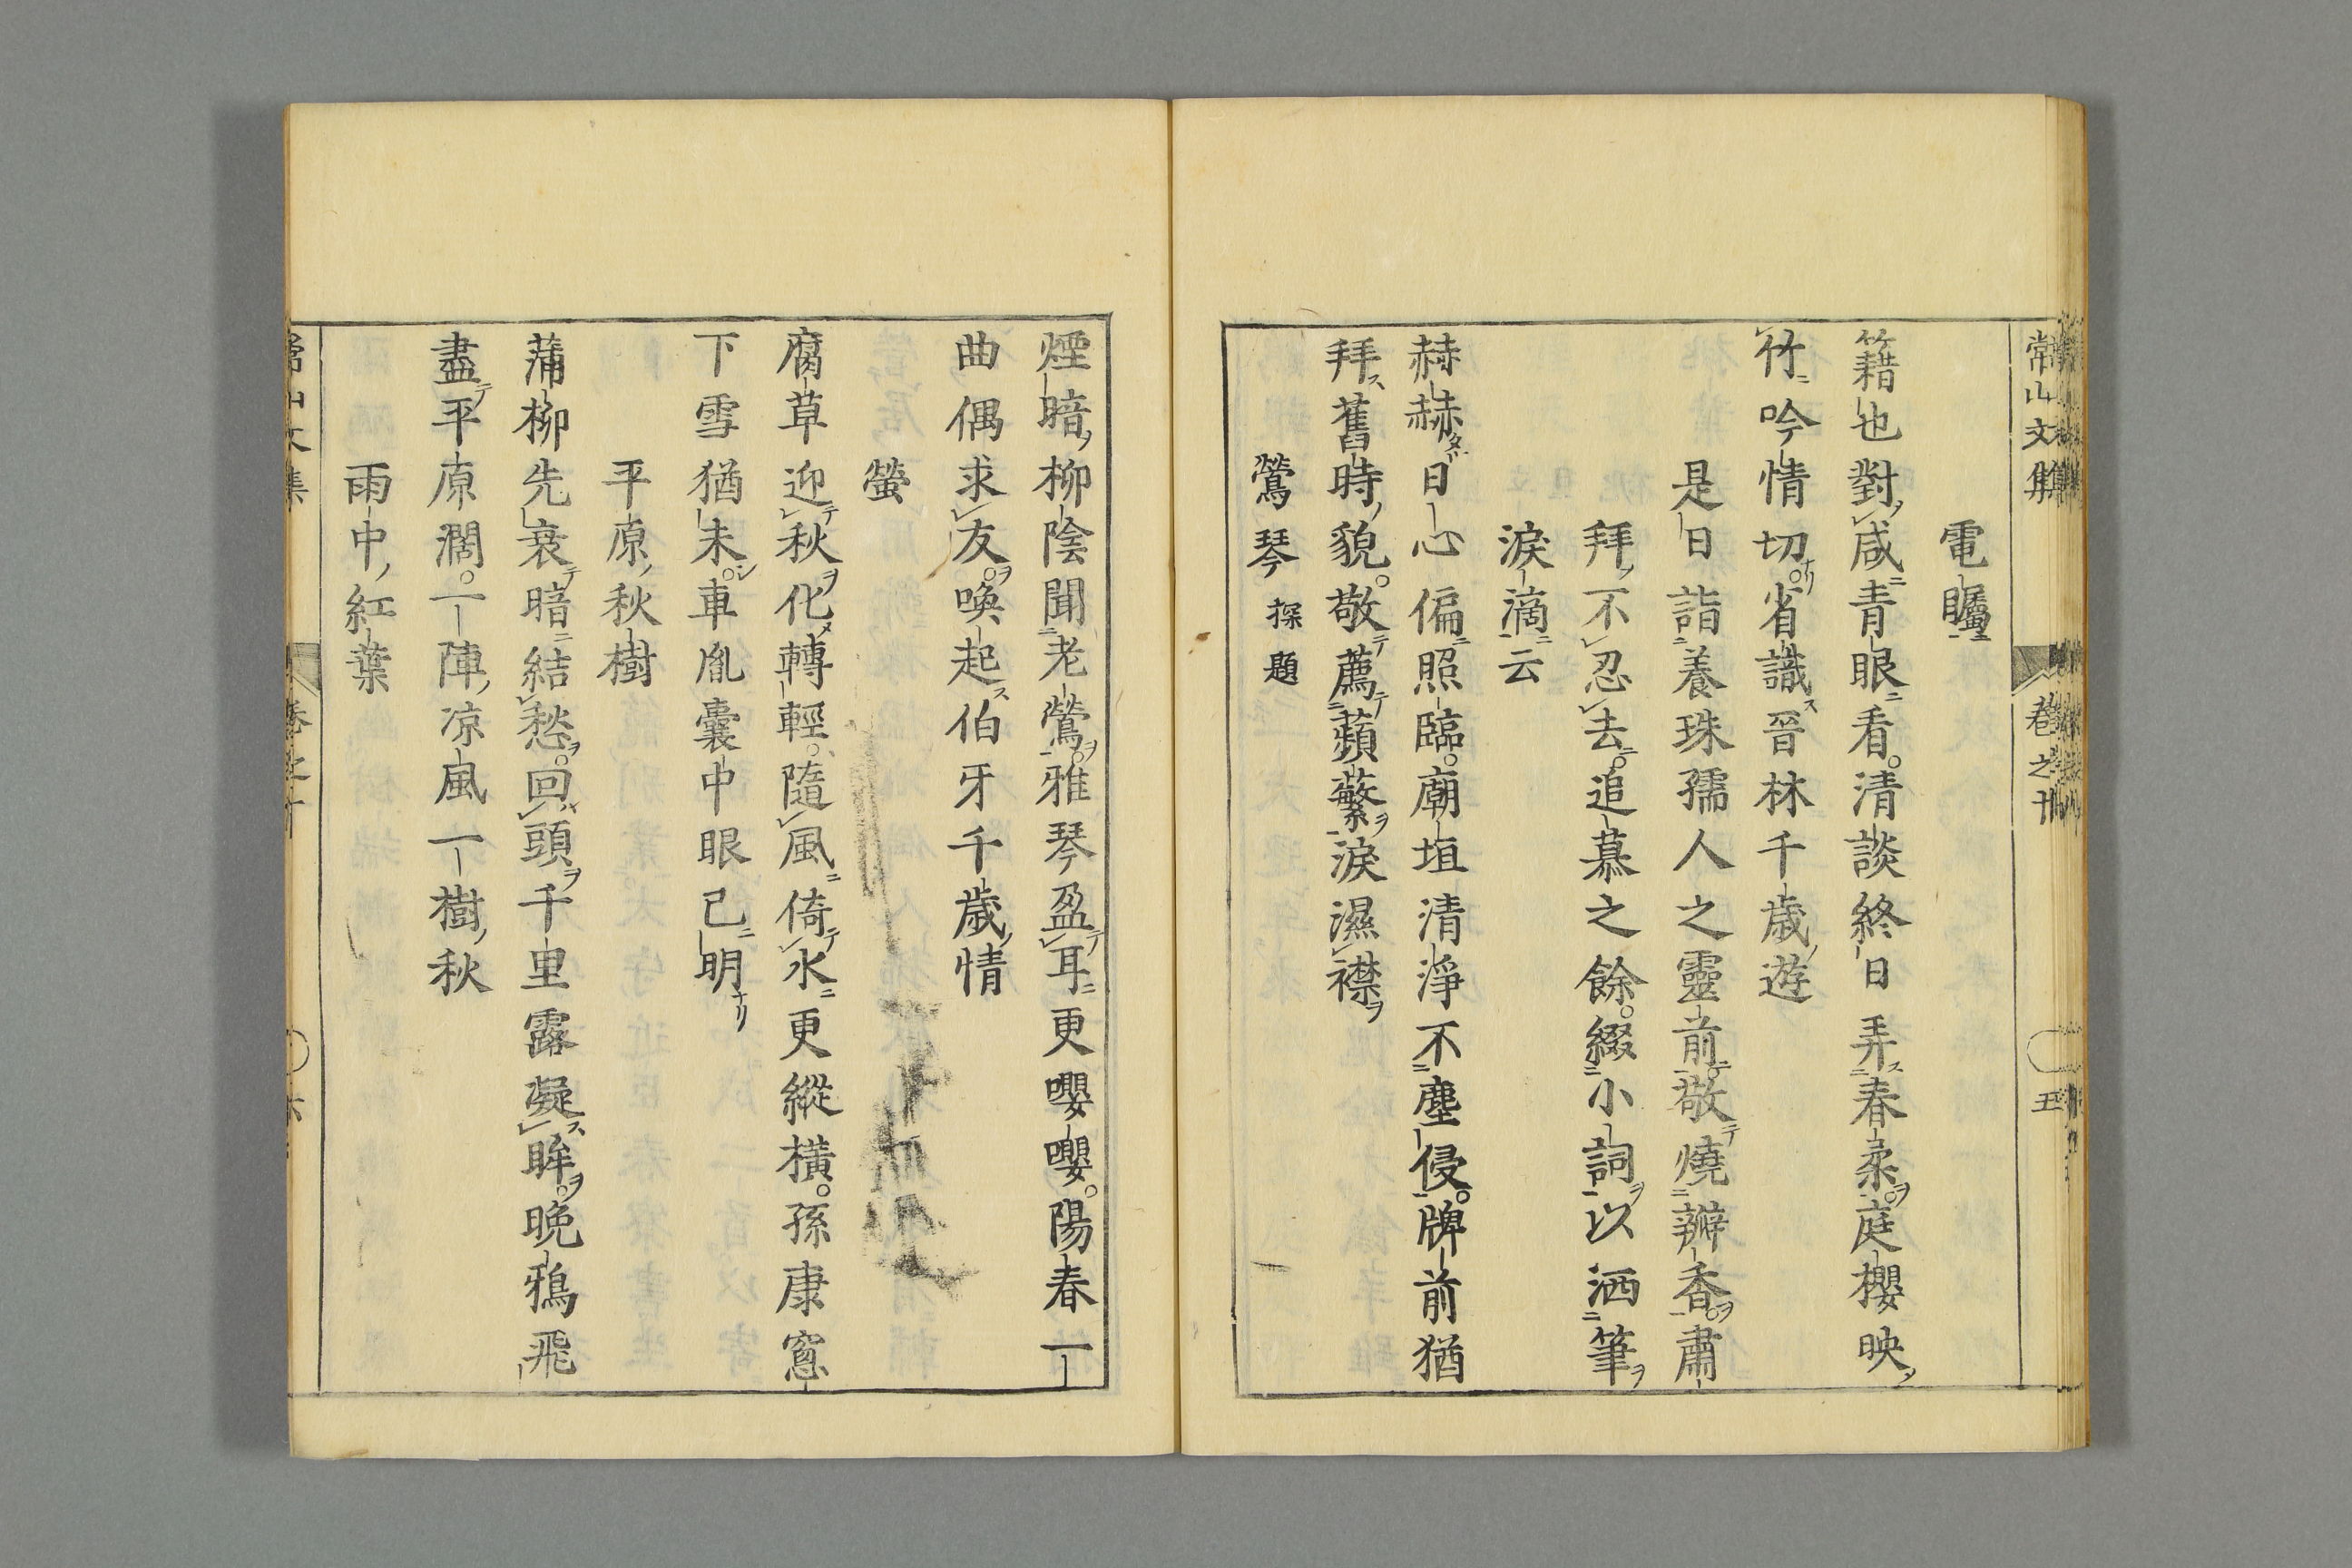 常山文集 卷之十 五
電矚
籍也對咸青眼看。清談終日弄春柔。庭櫻映
竹吟情切。省識晉林千歲遊
是日詣養珠孺人之靈前。敬燒瓣香。肅
拜不忍去。追慕之餘。綴小詞以洒筆
淚滴云
赫赫日心偏照臨。廟垣清淨不塵侵。牌前猶
拜舊時貌。敬薦蘋蘩淚濕襟
鶯琴 探題
煙暗柳陰聞老鶯。雅琴盈耳更嚶嚶。陽春一
曲偶求友。喚起伯牙千歲情
螢
腐草迎秋化轉輕。隨風倚水更縱橫。孫康窓
下雪猶未。車胤囊中眼已明
平原秋樹
蒲柳先衰暗結愁。回頭千里露凝眸。晚鴉飛
盡平原濶。一陣凉風一樹秋
雨中紅葉